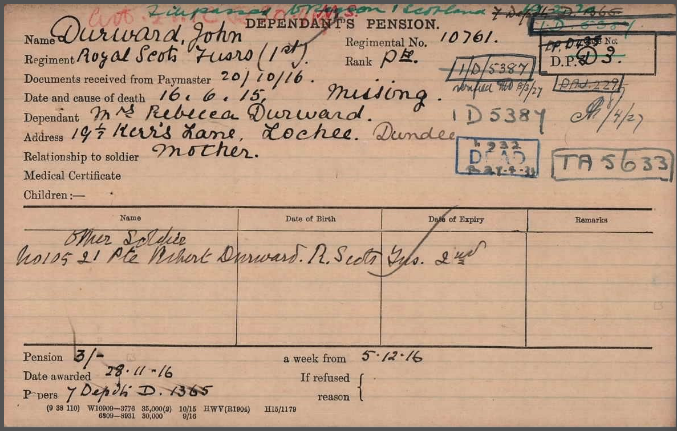 7 Depôt D. 1365
DEPENDANT'S PENSION.
1 D 5387
Name Durward, John
Regimental No. 10761.
D.P. D 3
Regiment Royal Scots Fusrs (1st)
Rank Pte.
1/D/5387
Documents received from Paymaster 20/10/16.
Date and cause of death 16.6.15. Missing.
4/27
Dependant Mrs Rebecca Durward.
1 D 5387
Address 19½ Kerr's Lane, Lochee. Dundee
DEAD
TA 5633
Relationship to soldier Mother.
Medical Certificate
Children:—
Name Date of Birth Date of Expiry Remarks
Other Soldier
No 10521 Pte Robert Durward. R. Scots Fus. 2nd
Pension 3/- a week from 5.12.16
Date awarded 28.11.16 If refused
Papers 7 Depôt D. 1365 reason
(9 38 110) W10909—3776 35,000(2) 10/15 HWV(R1904) H15/1179
6809—8931 30,000 9/16